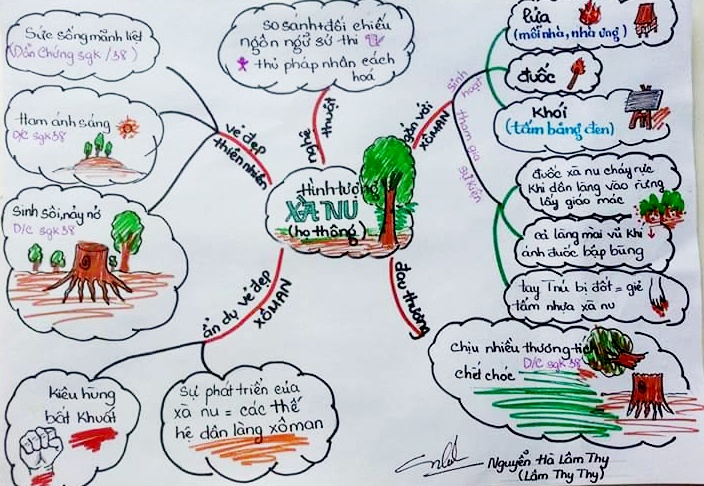 Sức sống mãnh liệt
(Dẫn Chứng sgk /38)
Ham ánh sáng
D/C sgk 38
Sinh sôi, nảy nở
D/C sgk 38
vẻ đẹp
thiên nhiên
so sánh + đối chiếu
ngôn ngữ sử thi
thủ pháp nhân cách
hoá
nghệ
thuật
Hình tượng
XÀ NU
(họ thông)
gắn với
XÔMAN
sinh
hoạt
lửa
(mỗi nhà, nhà ưng)
đuốc
Khói
(tấm bảng đen)
tham gia
sự kiện
đuốc xà nu cháy rực
khi dân làng vào rừng
lấy giáo mác
cả làng mài vũ khí
ánh đuốc bập bùng
tay Tnú bị đốt = giẻ
tẩm nhựa xà nu
đau thương
chịu nhiều thương tích
D/C sgk 38
chết chóc
ẩn dụ vẻ đẹp
XÔMAN
Kiêu hùng
bất khuất
Sự phát triển của
xà nu = các thế
hệ dân làng xôman
Nguyễn Hà Lâm Thy
(Lâm Thy Thy)